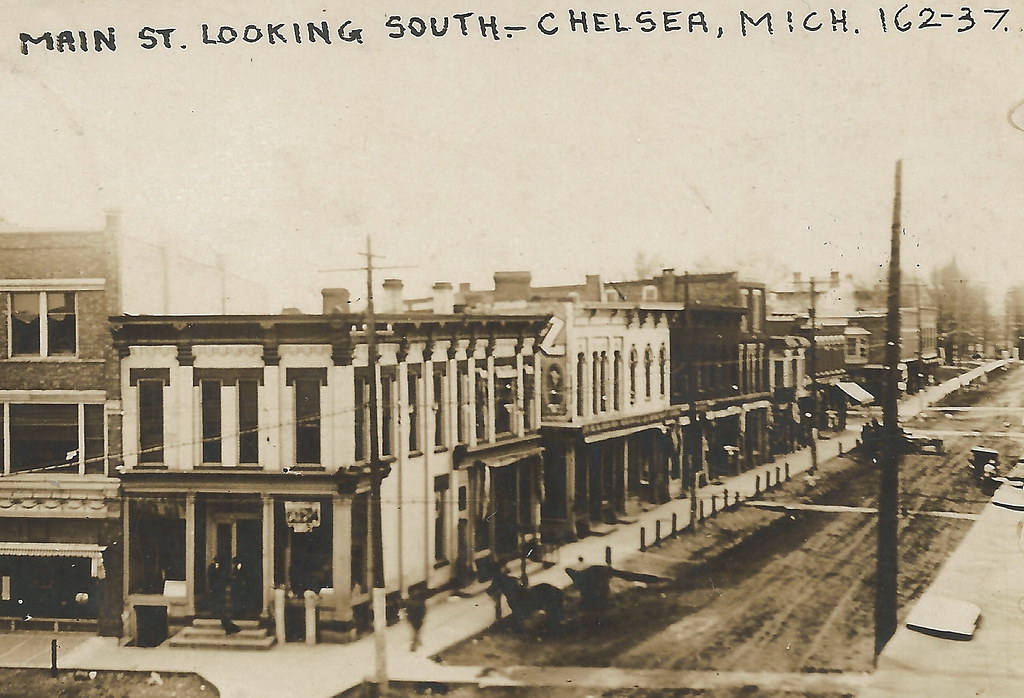 MAIN ST. LOOKING SOUTH.- CHELSEA, MICH. 162-37.